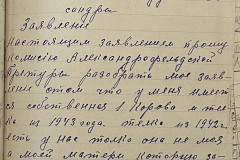 сандры
Заявление
Настоящим заявлением прошу
комисию Александрофельдской
разобрать мое заяв
ление отом что у меня имеет
ся собственная 1 корова и те
ка из 1943 года телка из 1942 г
есть у нас только она не моя
а моей матери которою за